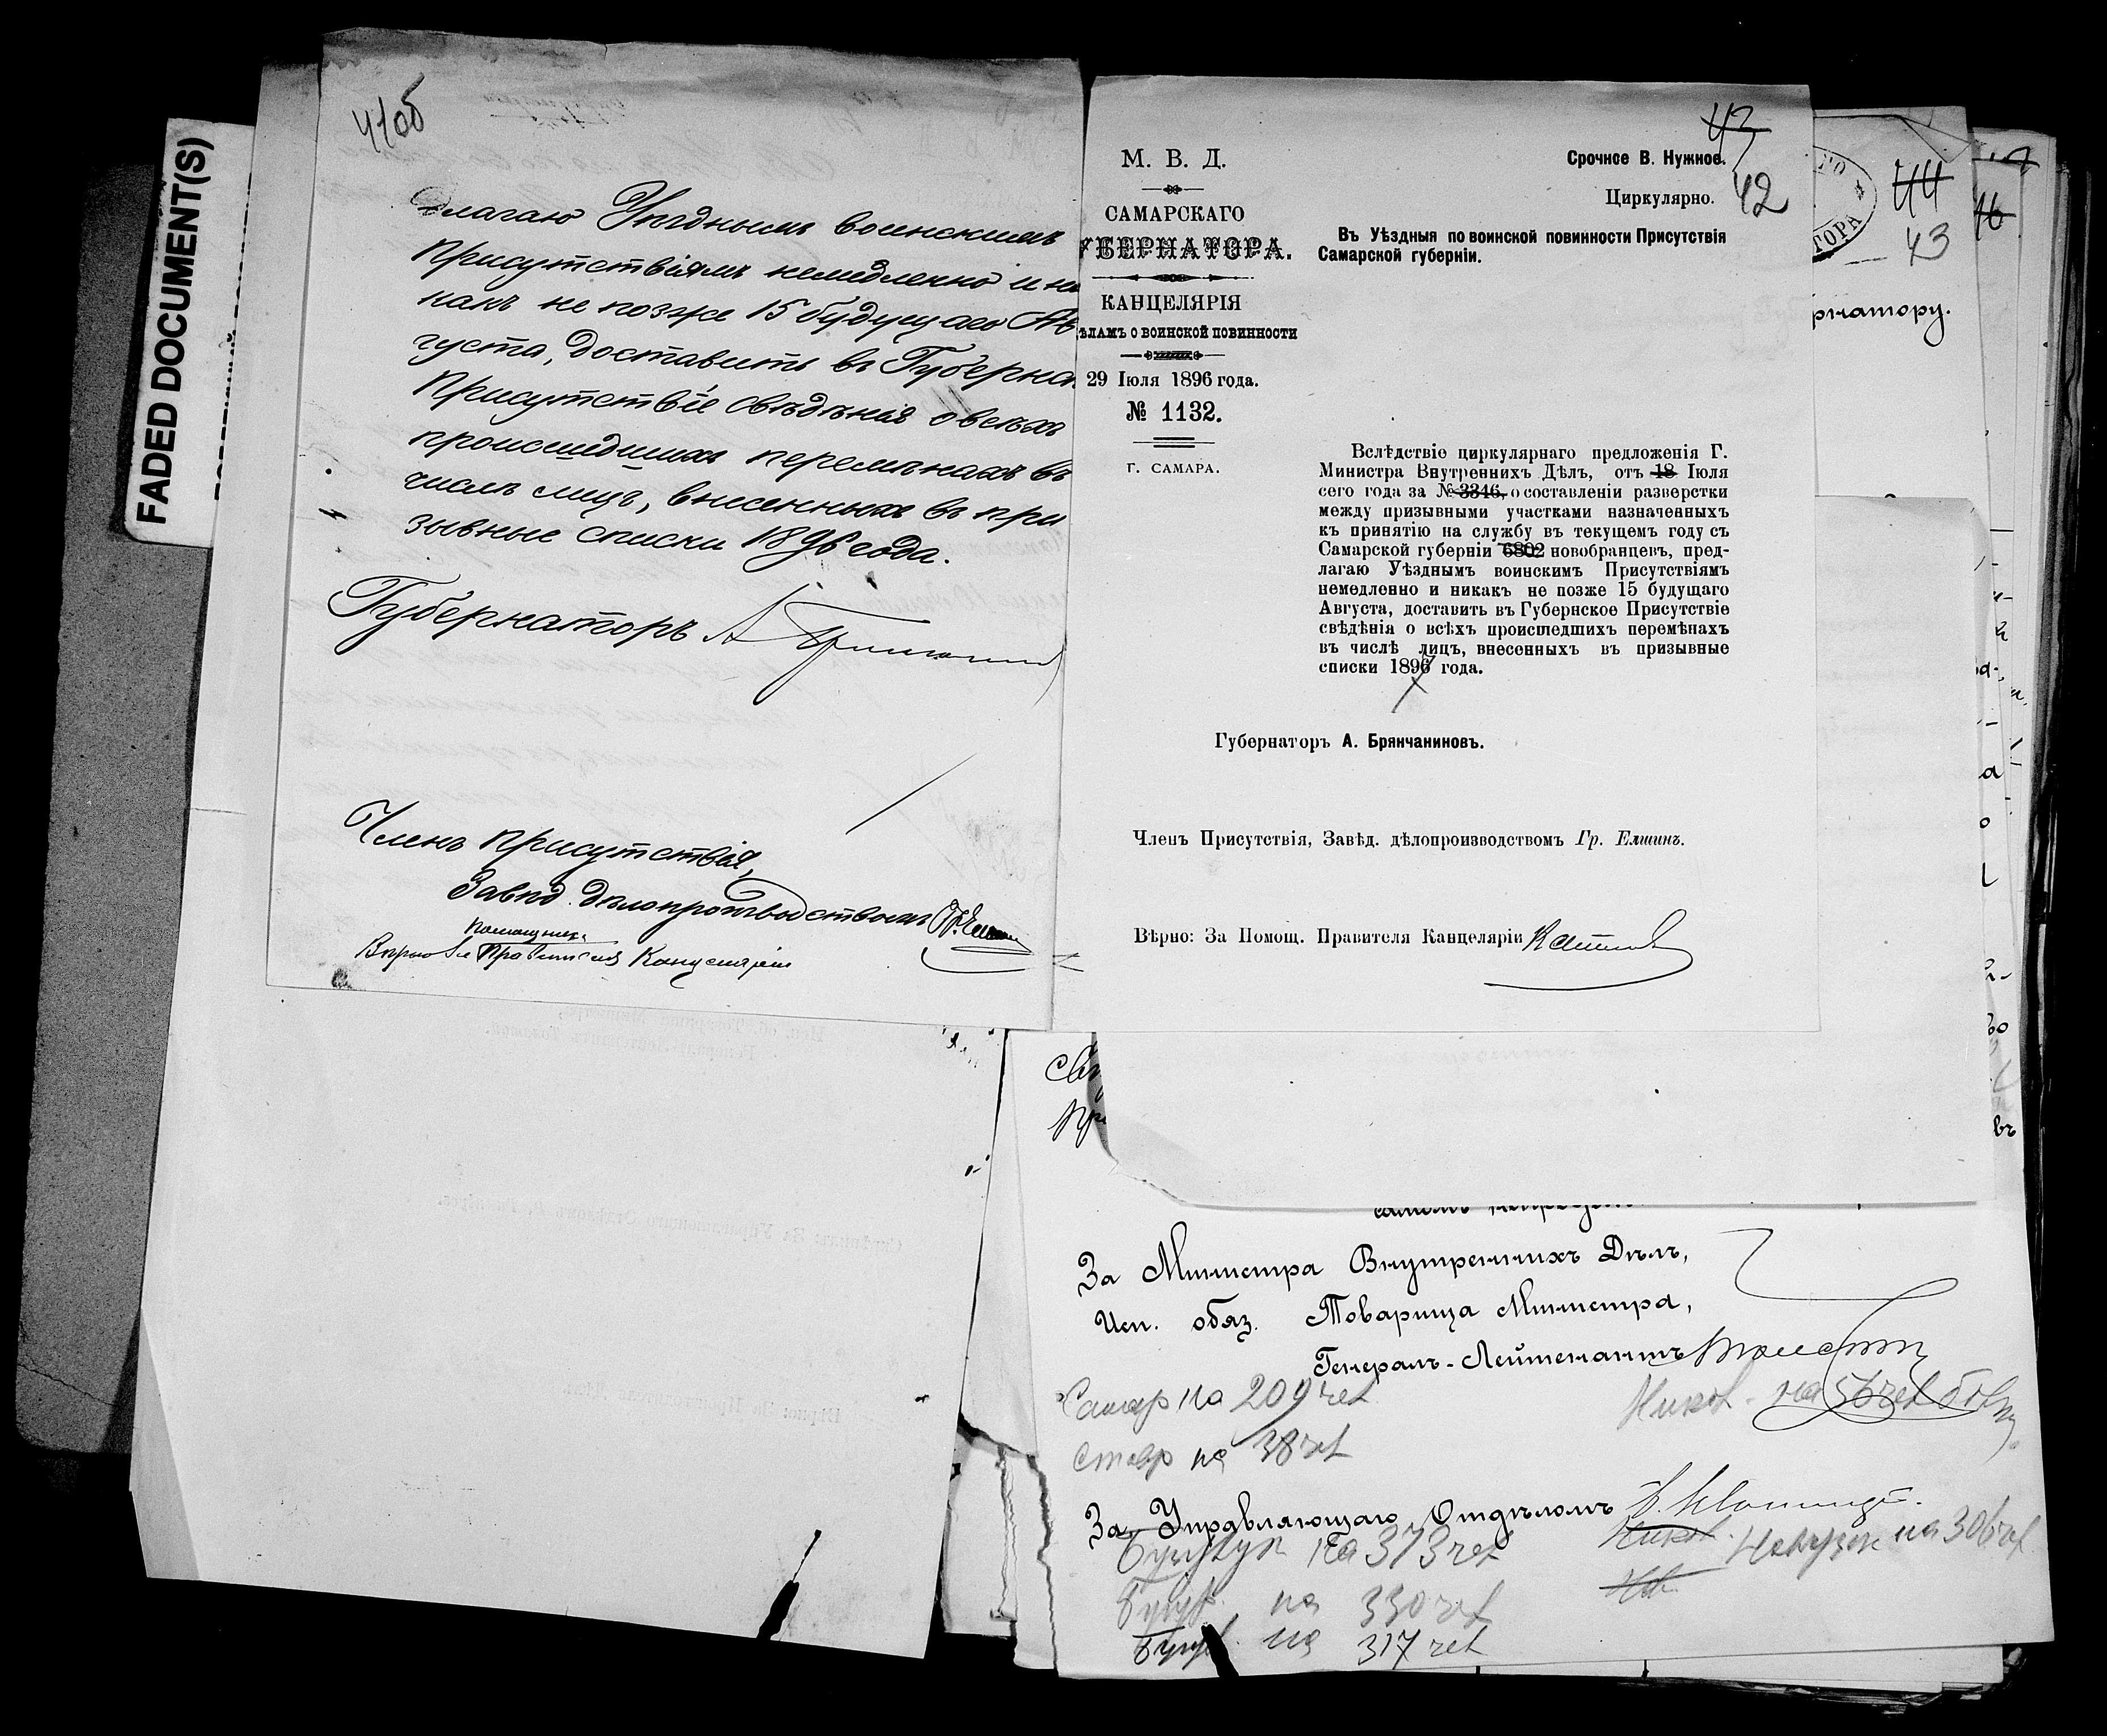 FADED DOCUMENT(S)
41об
длагаю Уѣзднымъ воинскимъ
Присутствіямъ немедленно и ни
какъ не позже 15 будущаго Ав
густа, доставить въ Губернск
Присутствіе свѣдѣнія о всѣхъ
происшедшихъ перемѣнахъ въ
числѣ лицъ, внесенныхъ въ при
зывные списки 1896 года.
Губернаторъ А Брянчаниновъ
Членъ Присутствія,
Завѣд. дѣлопроизводствомъ Гр. Елшинъ
помощника
Вѣрно За Правителя Канцеляріи
43
42
М. В. Д.
САМАРСКАГО
ГУБЕРНАТОРА.
КАНЦЕЛЯРІЯ
ѢЛАМЪ О ВОИНСКОЙ ПОВИННОСТИ
29 Іюля 1896 года.
№ 1132.
Г. САМАРА.
Срочное В. Нужное.
Циркулярно.
Въ Уѣздныя по воинской повинности Присутствія
Самарской губерніи.
Вслѣдствіе циркулярнаго предложенія Г.
Министра Внутреннихъ Дѣлъ, отъ 18 Іюля
сего года за № 3346, о составленіи разверстки
между призывными участками назначенныхъ
къ принятію на службу въ текущемъ году съ
Самарской губерніи 6802 новобранцевъ, пред-
лагаю Уѣзднымъ воинскимъ Присутствіямъ
немедленно и никакъ не позже 15 будущаго
Августа, доставить въ Губернское Присутствіе
свѣдѣнія о всѣхъ происшедшихъ перемѣнахъ
въ числѣ лицъ, внесенныхъ въ призывные
списки 1896 года.
7
Губернаторъ А. Брянчаниновъ.
Членъ Присутствія, Завѣд. дѣлопроизводствомъ Гр. Елшинъ.
Вѣрно: За Помощ. Правителя Канцеляріи
44
43
ТОРА
рнатору.
За Министра Внутреннихъ Дѣлъ,
Исп. обяз. Товарища Министра,
Генералъ-Лейтенантъ
Самар на 209 чел
Никол. на 56 чел
Ставр на 38 чел
За Управляющаго Отдѣломъ
Бузулук на 373 чел
Никол. Новоузен на 306 чел
Бугур. на 330 чел
Бугул. на 317 чел